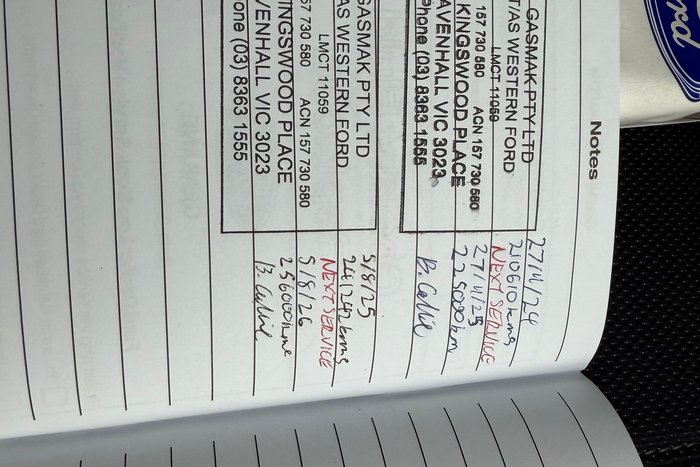 Notes
GASMAK PTY LTD
T/AS WESTERN FORD
LMCT 11059
157 730 580 ACN 157 730 580
KINGSWOOD PLACE
AVENHALL VIC 3023
Phone (03) 8363 1555
27/11/24
210610 kms
NEXT SERVICE
27/11/25
225000 km
GASMAK PTY LTD
AS WESTERN FORD
LMCT 11059
57 730 580 ACN 157 730 580
INGSWOOD PLACE
VENHALL VIC 3023
one (03) 8363 1555
5/8/25
241242 kms
NEXT SERVICE
5/8/26
256000 kms
rd